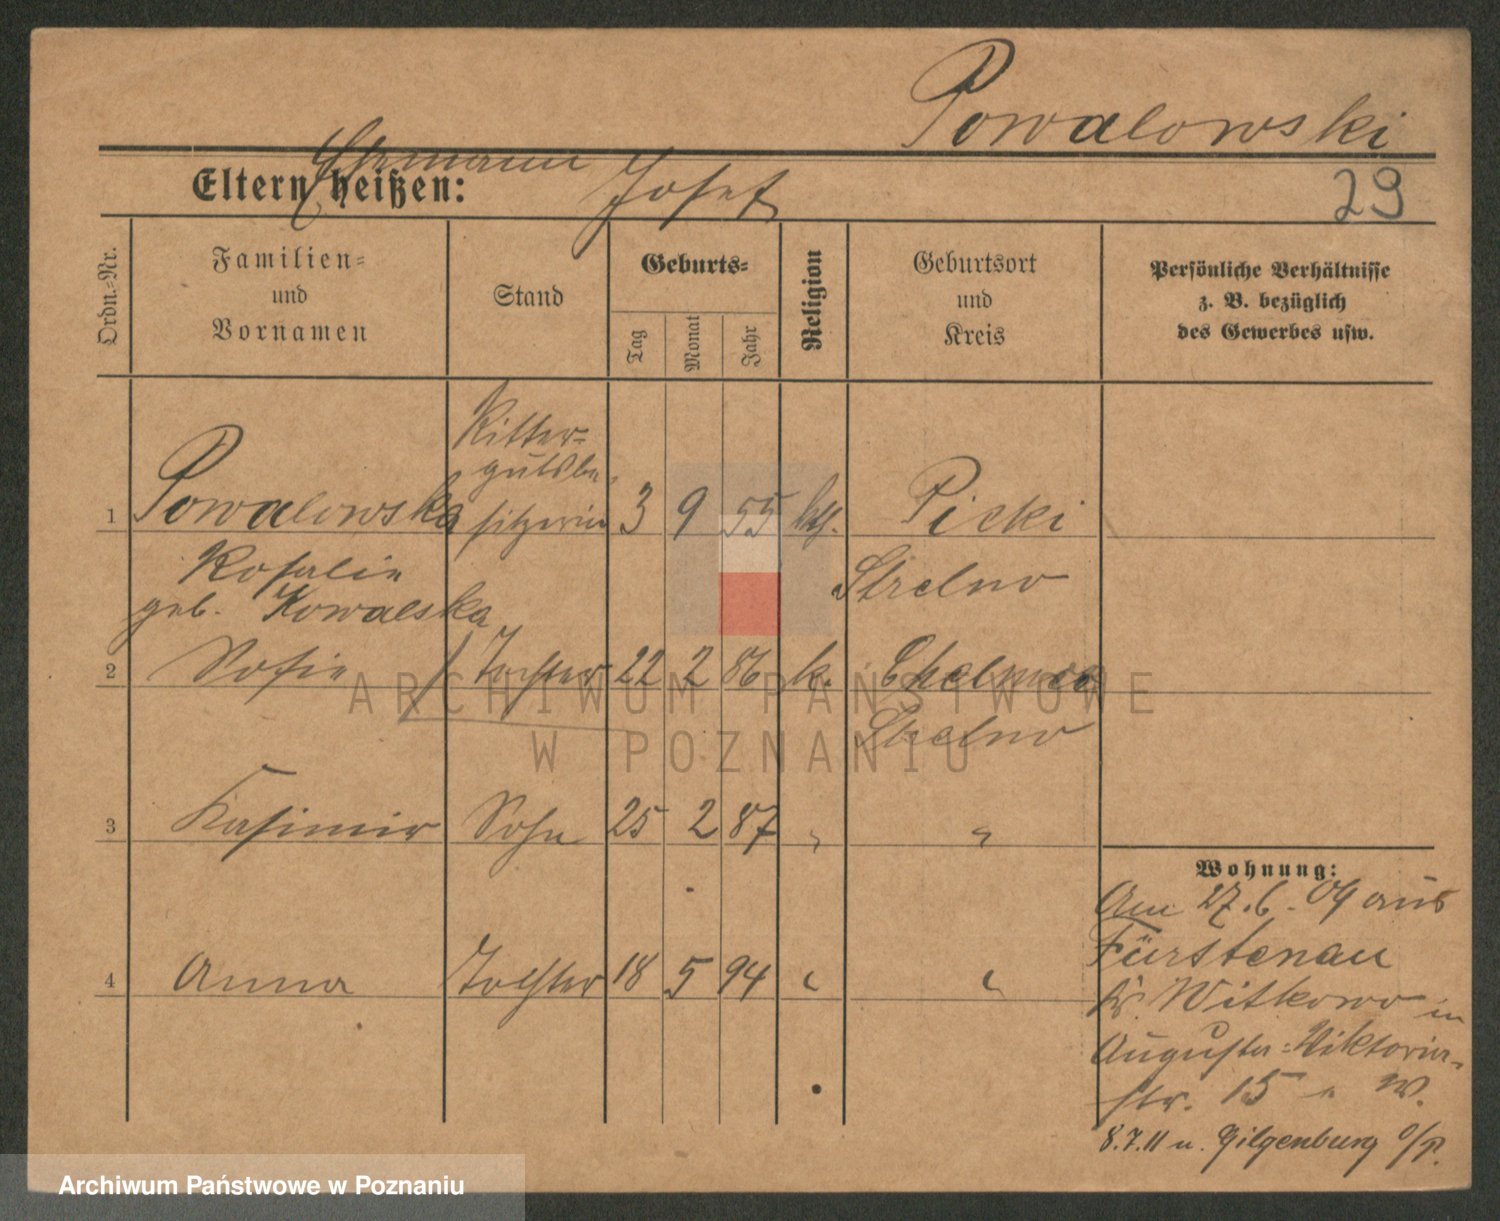 Powalowski
Ehemann Josef
Eltern heißen:
29
Ordn.-Nr.
Familien-
und
Vornamen
Stand
Geburts-
Tag
Monat
Jahr
Religion
Geburtsort
und
Kreis
Persönliche Verhältnisse
z. B. bezüglich
des Gewerbes usw.
Ritter-
gutsbe-
1 Powalowska sitzerin 3 9 55 kth. Picki
Rosalie Strelno
geb. Kowalska
2 Sofie Tochter 22 2 86 k. Chelmce
Strelno
3 Kasimir Sohn 25 2 87 " "
4 Anna Tochter 18 5 94 " "
Wohnung:
Am 27.6.09 aus
Fürstenau
Kr. Witkowo in
Augusta-Viktoria-
str. 15 W.
8.7.11 n. Gilgenburg O/P.
ARCHIWUM PAŃSTWOWE
W POZNANIU
Archiwum Państwowe w Poznaniu